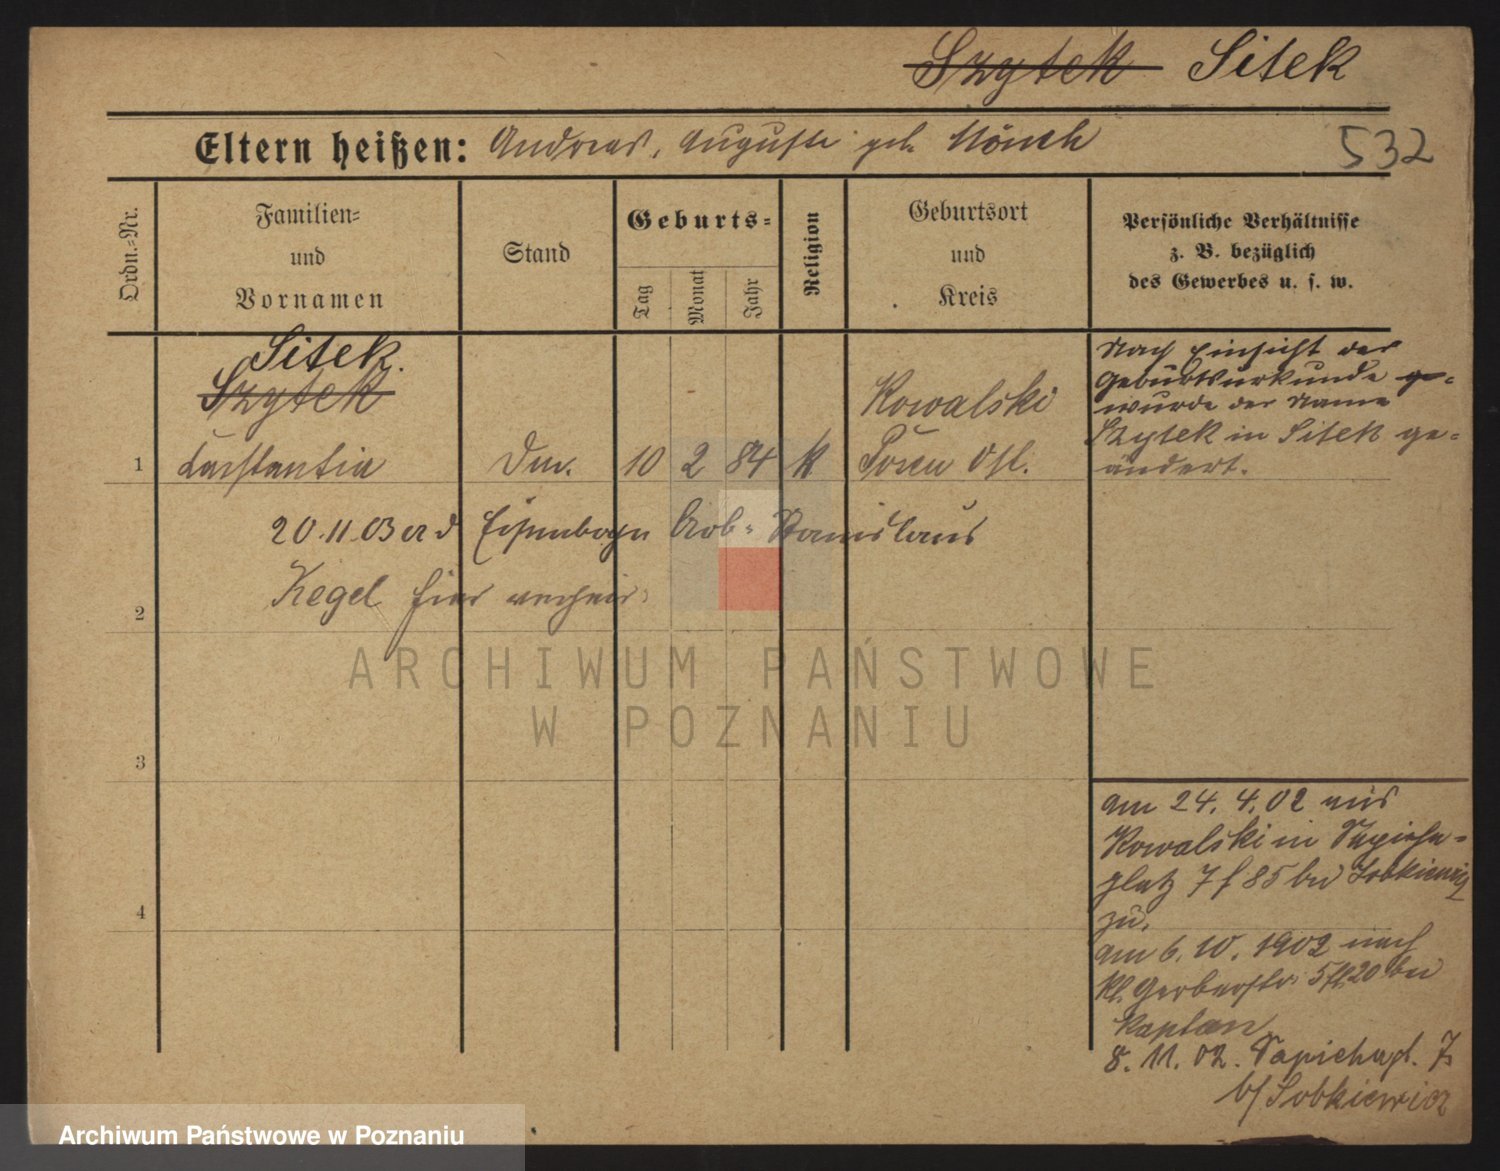 Szytek Sitek
Eltern heißen: Andreas, Auguste geb. Mönch
532
Ordn.=Nr.
Familien=
und
Vornamen
Stand
Geburts=
Tag
Monat
Jahr
Religion
Geburtsort
und
Kreis
Persönliche Verhältnisse
z. B. bezüglich
des Gewerbes u. s. w.
Sitek.
Szytek
1 Constantia
10 2 84 k
Kowalski
Posen Ost.
Nach Einsicht der
Geburtsurkunde ge=
wurde der Name
Szytek in Sitek ge=
ändert.
20.11.03 a d Eisenbahn Arb. Stanislaus
2 Kegel hier verheir:
3
4
am 24.4.02 aus
Kowalski in Sapieha=
platz 7 f 85 bei Sobkiewicz
zu.
am 6.10.1902 nach
kl. Gerberstr. 5 fl. 20 bei
Kaplan
8.11.02. Sapiehapl. 7
b/ Sobkiewicz
ARCHIWUM PAŃSTWOWE
W POZNANIU
Archiwum Państwowe w Poznaniu